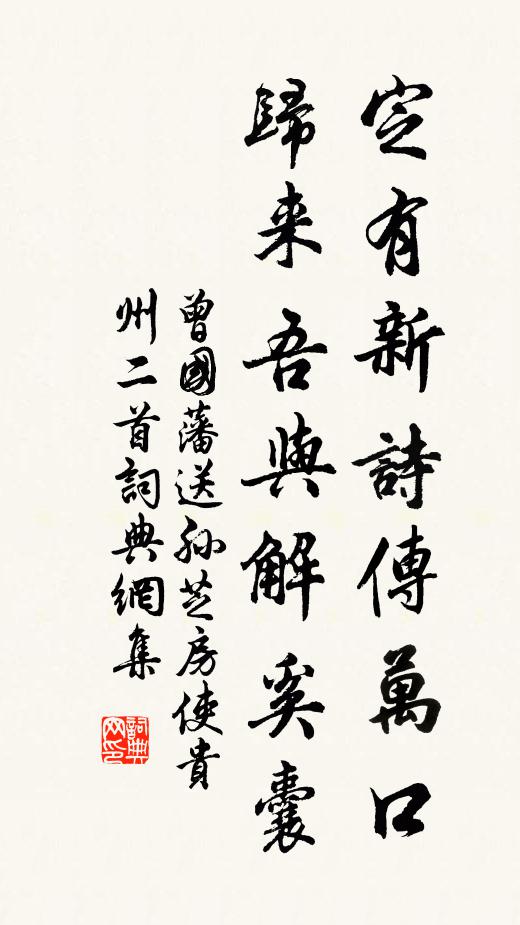 定有新詩傳萬口
歸来吾與解奚囊
曾國藩送孫芝房使貴
州二首詞典網集
詞典
网印